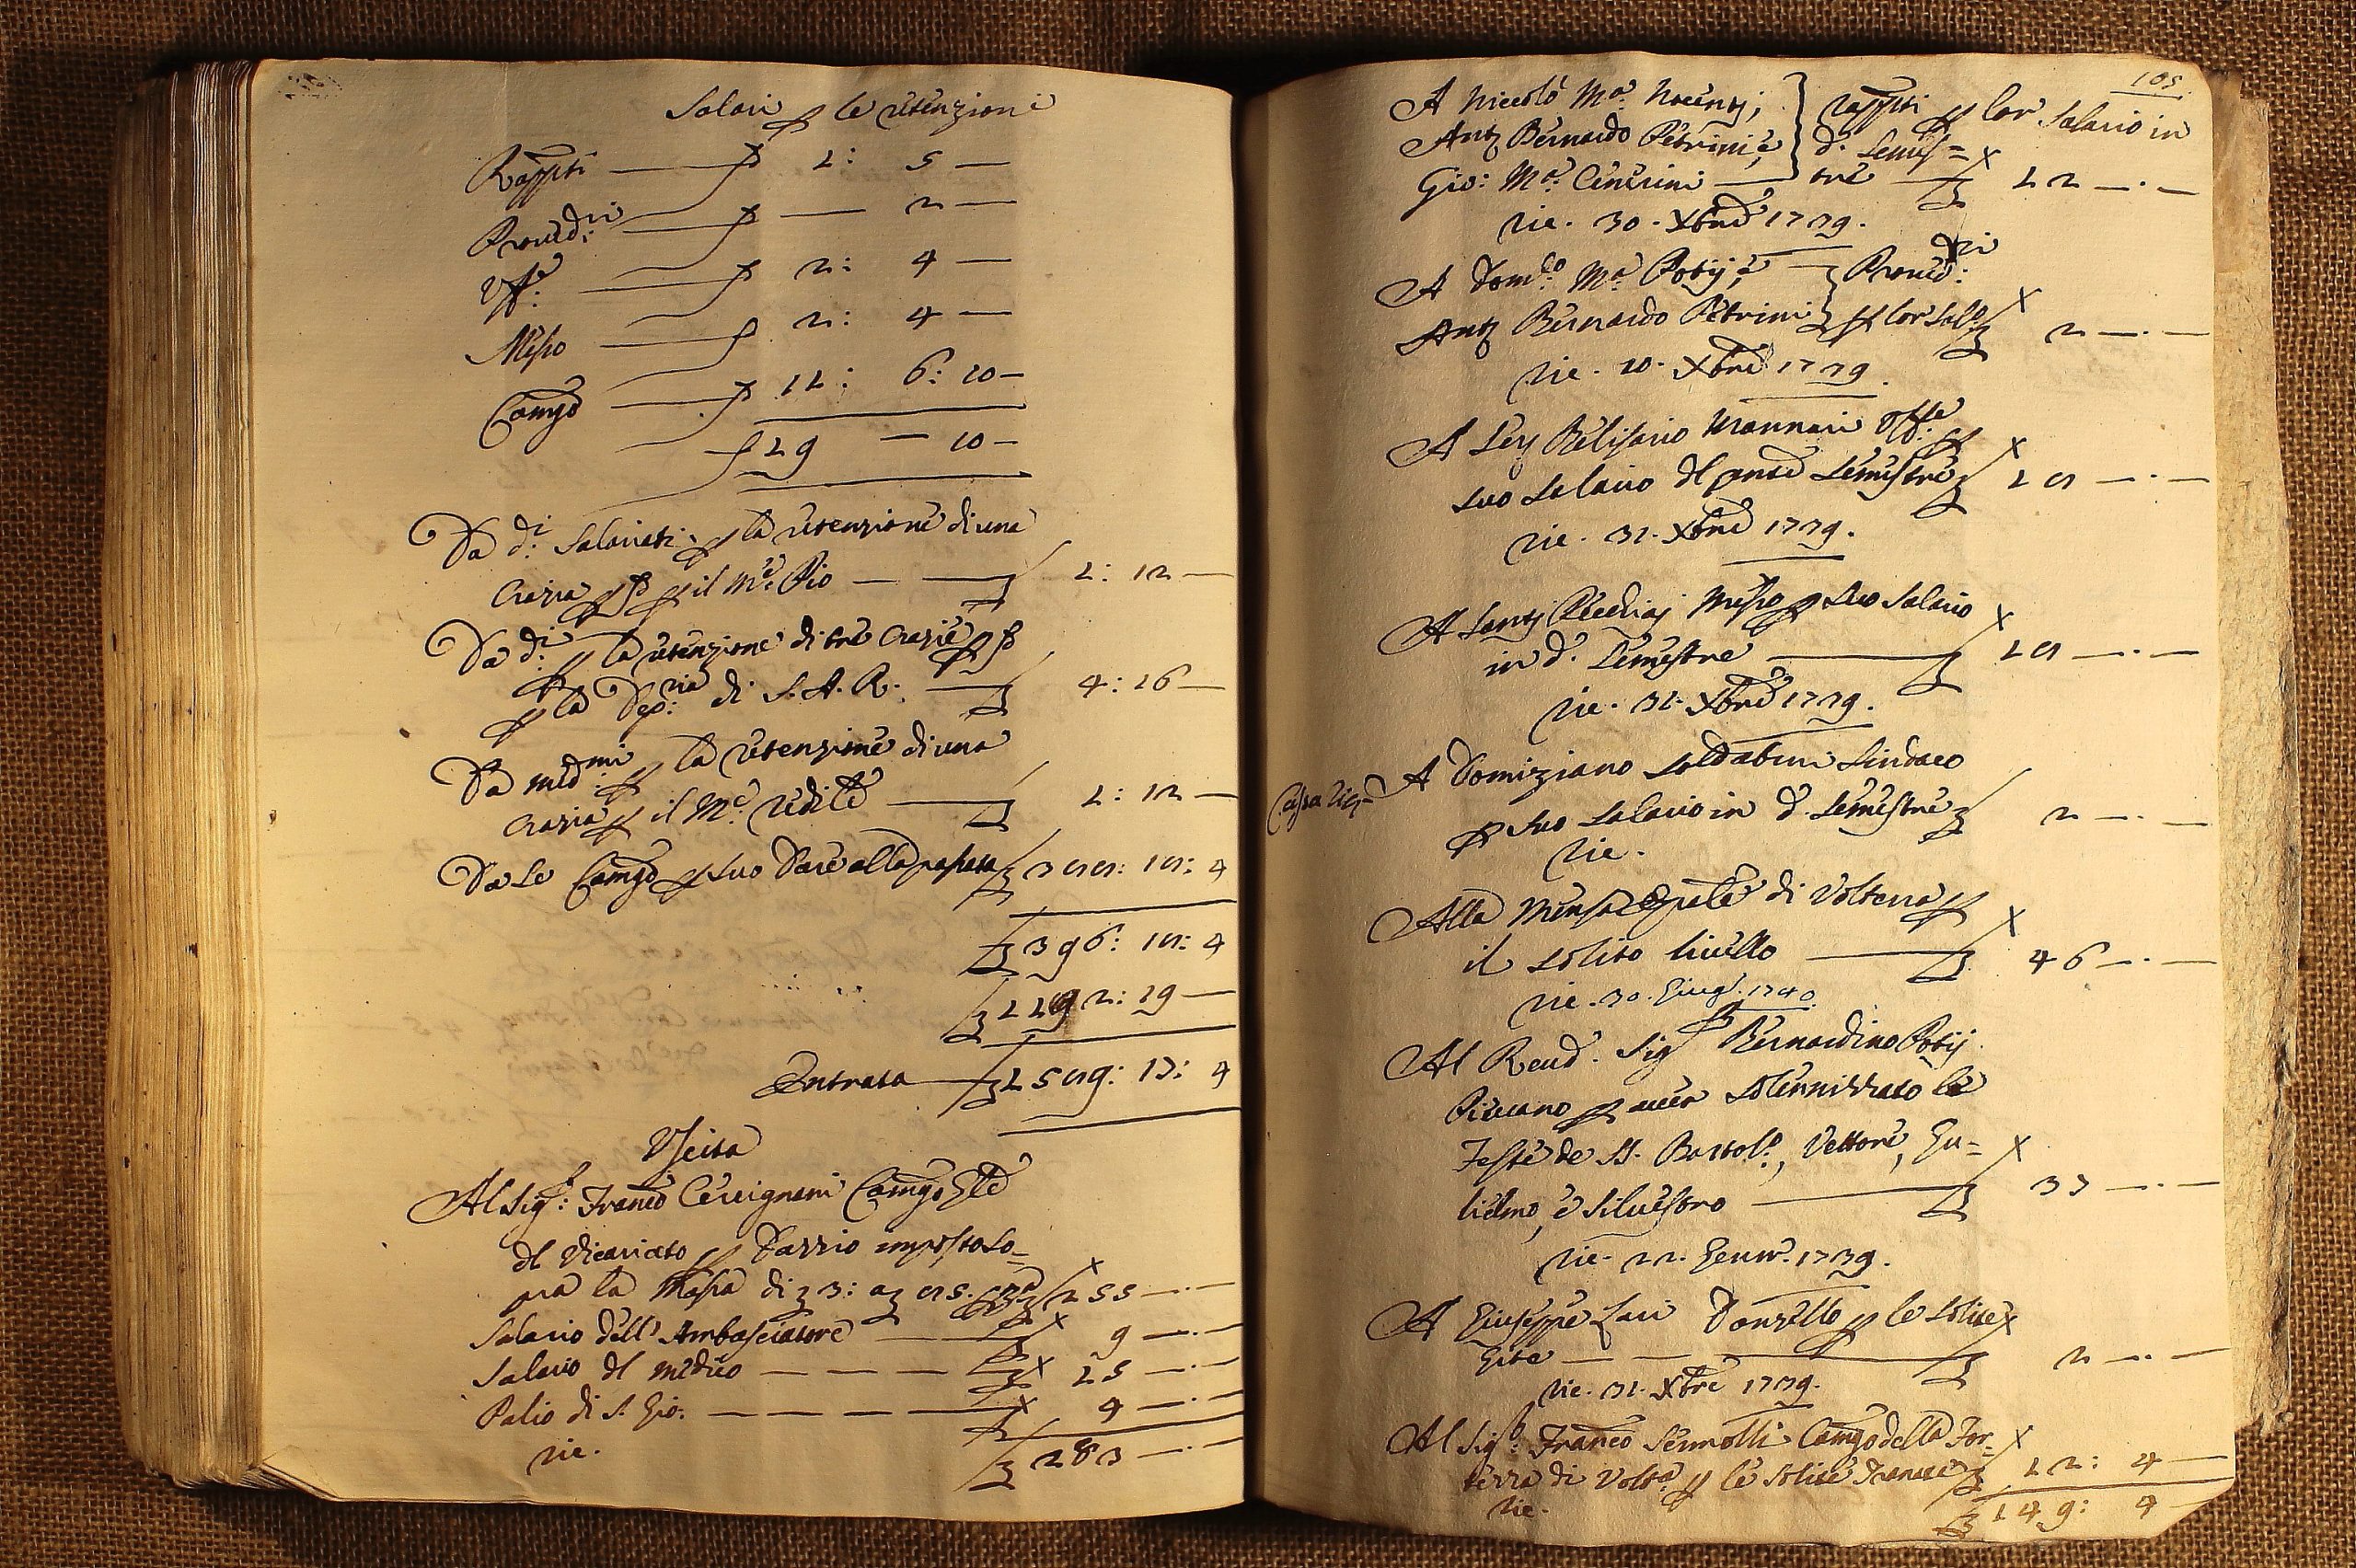 Salari p le ritenzioni
Rapp.ti 1: 5 —
Proved.ri — 2 —
Uff.e 2: 4 —
Messo 2: 4 —
Camg.o 12: 6: 10 —
19 — 10 —
Da d.i Salariati p la ritenzione di una
Crazia p il M.e Pio 1: 12 —
Da d.i p la ritenzione di tre Crazie p
p la Dep.ria di S. A. R. 4: 16 —
Da med.mi p la ritenzione di una
crazia p il M.e redile 1: 12 —
Da Le Camg.o p suo Dare alla passata
396: 10: 4
Entrata
Uscita
Al Sig.r: Franc.o Cervignani Camg.o Gle
del Vicariato p Dazzio imposto so=
pra la Massa di 255 —.—
Salario dell' Ambasciatore 9 —.—
Salario del Medico 15 —.—
Palio di S. Gio: 4 —.—
ric. 283 —.—
105
A Niccolò M.a Nocenti,
Ant.o Bernardo Petrini, e
Gio: M.a Cenerini
rapp.ti p lor Salario in
d.o Semes=
tre 12 —.—
ric. 30. Xbre 1739.
A Dom.co M.a Pobij, e
Ant.o Bernardo Petrini
Proved.ri
p lor Sal.o 2 —.—
ric. 10. Xbre 1739.
A Ser Belisario Mannari Uff.le p
suo Salario del Semestre
ric. 31. Xbre 1739.
A Santi Messo p suo Salario
in d.o Semestre
ric. 31. Xbre 1739.
A Domiziano Soldatini Sindaco
p suo Salario in d.o Semestre 2 —.—
ric.
Alla Mensa Epale di Volterra p
il solito livello 46 —.—
ric. 30. Giug.o 1740.
Al Rev.d Sig.r Bernardino Pobij
Pievano p aver solennizzato le
Feste de SS. Bartol.o, Vettore, Gu=
lielmo, e Silvestro 33 —.—
ric. 22. Genn.o 1739.
A Giuseppe Lari Donzello p le solite
Gite 2 —.—
ric. 31. Xbre 1739.
Al Sig.r Franc.o Sermolli Camg.o della For=
tezza di Volt.a p le solite 12: 4 —
ric. 149: 4 —